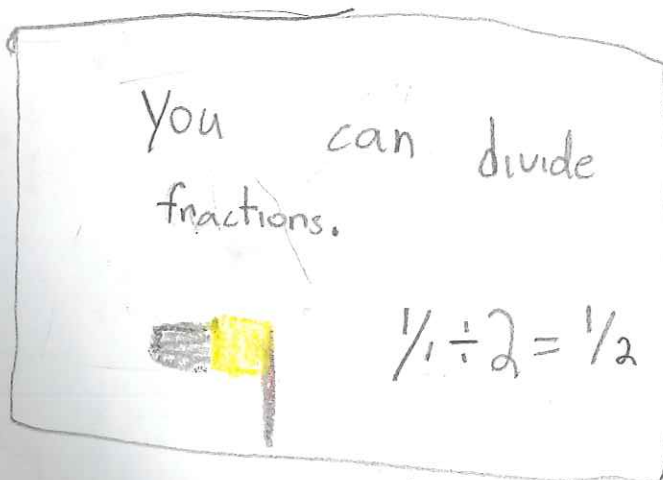 You can divide
fractions.
1/1 ÷ 2 = 1/2